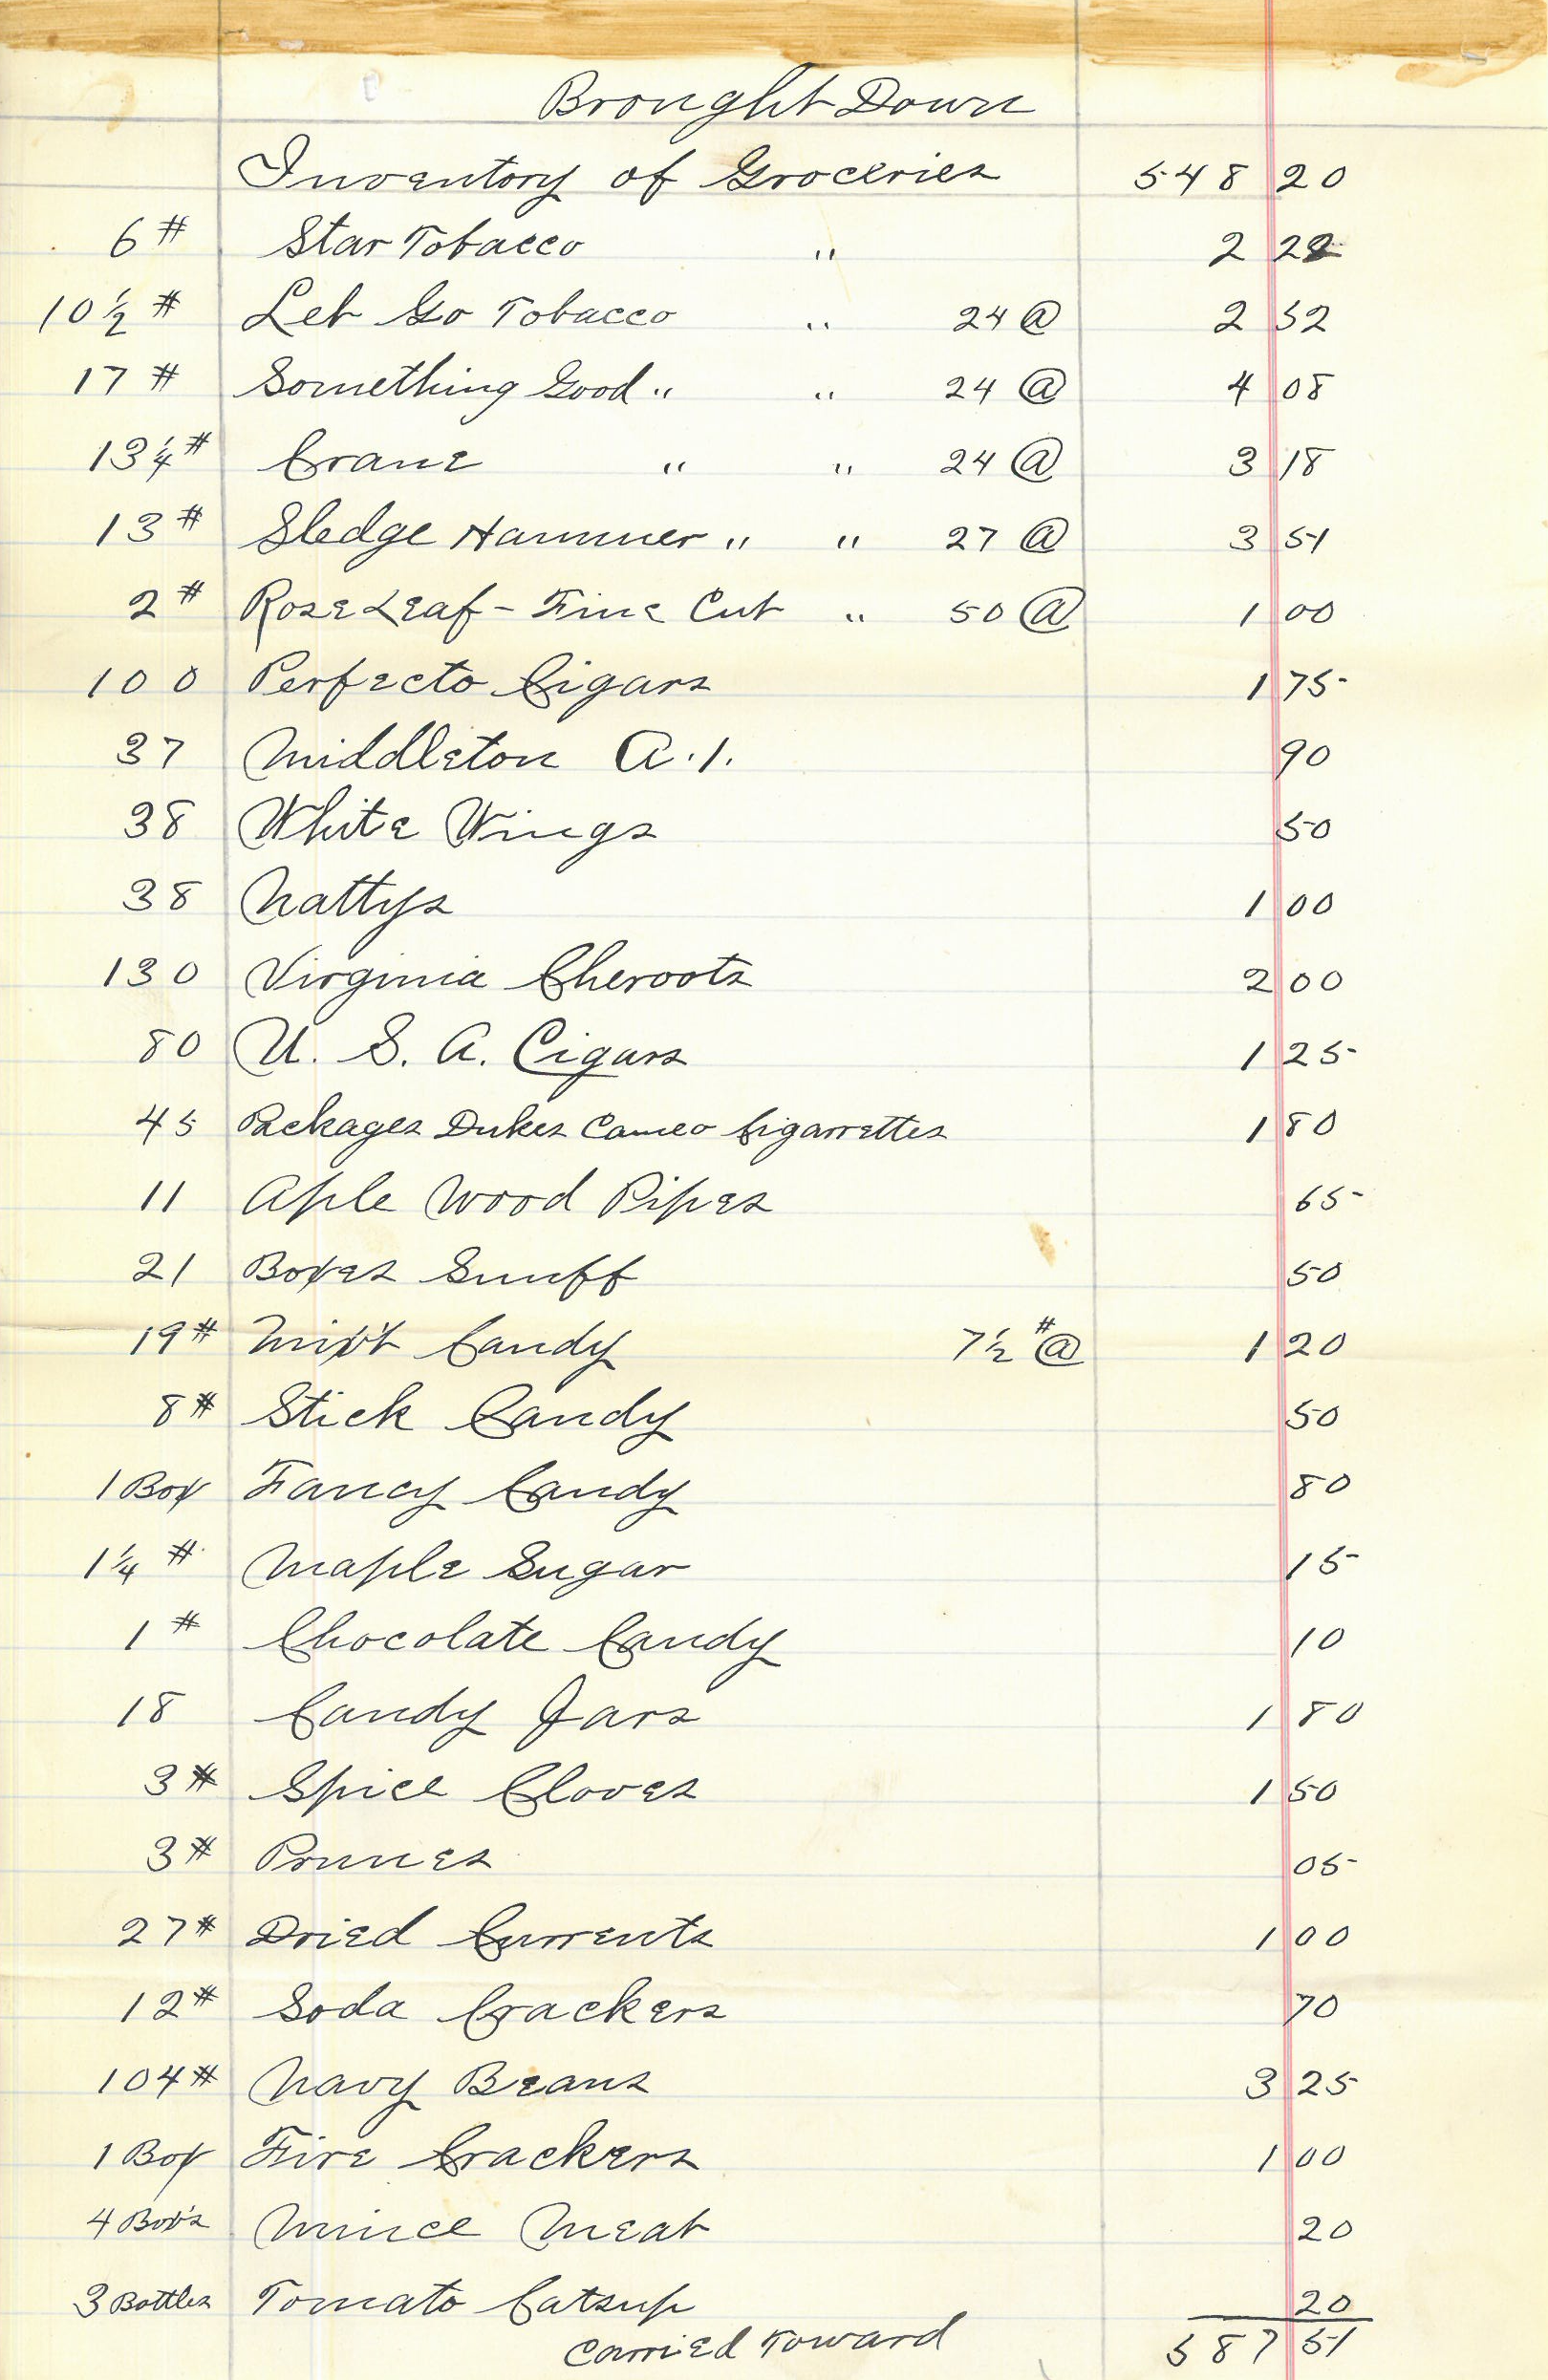 Brought Down
Inventory of Groceries 548 20
6# Star Tobacco " 2 22
10½# Let Go Tobacco " 24 @ 2 52
17# Something Good " " 24 @ 4 08
13¼# Crane " " 24 @ 3 18
13# Sledge Hammer " " 27 @ 3 51
2# Rose Leaf - Fine Cut " 50 @ 1 00
100 Perfecto Cigars 1 75
37 Middleton A.1. 90
38 White Wings 50
38 Nattys 1 00
130 Virginia Cheroots 2 00
80 U. S. A. Cigars 1 25
45 Packages Dukes Cameo Cigarrettes 1 80
11 Aple Wood Pipes 65
21 Boxes Snuff 50
19# Mix't Candy 7½# @ 1 20
8# Stick Candy 50
1 Box Fancy Candy 80
1¼# Maple Sugar 15
1# Chocolate Candy 10
18 Candy Jars 1 80
3# Spice Cloves 1 50
3# Prunes 05
27# Dried Currents 1 00
12# Soda Crackers 70
104# Navy Beans 3 25
1 Box Fire Crackers 1 00
4 Box's Mince Meat 20
3 Bottles Tomato Catsup 20
Carried Toward 587 51